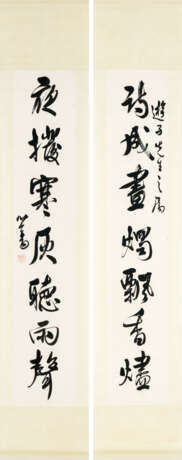 詩成畫燭飄香燼
遊子先生之屬
夜撥寒灰聽雨聲
心畬